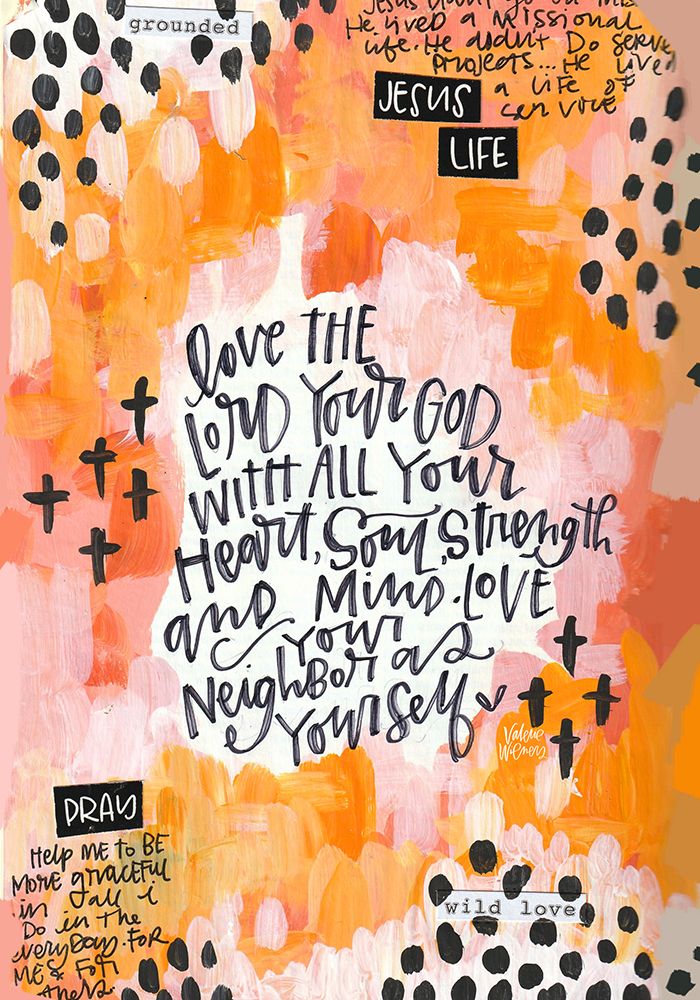 grounded
Jesus didn't go on
He lived a Missional
life. He didn't Do serve
projects... He lived
a life of
service
JESUS
LIFE
love THE
LORD Your GOD
WITH ALL Your
Heart, Soul, Strength
and Mind. LOVE
your
Neighbor as
Yourself
Valerie
Wieners
PRAY
HELP ME TO BE
MORE graceful
in all i
DO in THE
everyDay. FOR
ME & FOR
OTHERS.
wild love